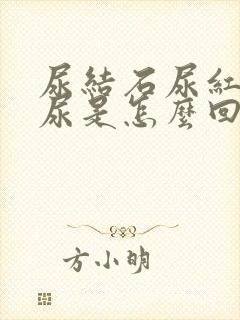 尿結石尿紅
尿是怎麼回
方小明